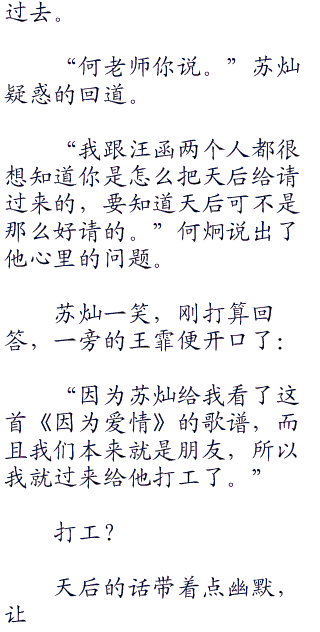 过去。
“何老师你说。”苏灿
疑惑的回道。
“我跟汪函两个人都很
想知道你是怎么把天后给请
过来的，要知道天后可不是
那么好请的。”何炯说出了
他心里的问题。
苏灿一笑，刚打算回
答，一旁的王霏便开口了：
“因为苏灿给我看了这
首《因为爱情》的歌谱，而
且我们本来就是朋友，所以
我就过来给他打工了。”
打工？
天后的话带着点幽默，
让